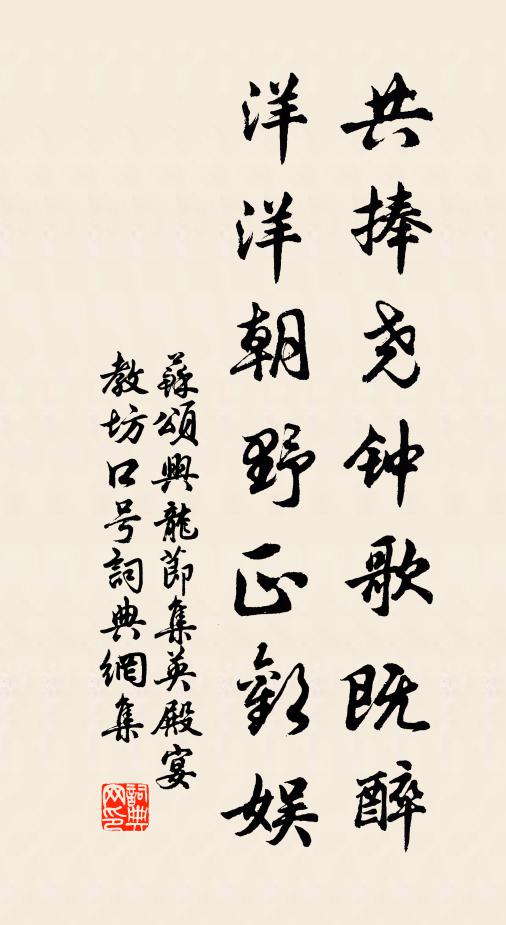 共捧尧钟歌既醉
洋洋朝野正歡娱
蘇頌興龍節集英殿宴
教坊口号詞典網集
詞典网印